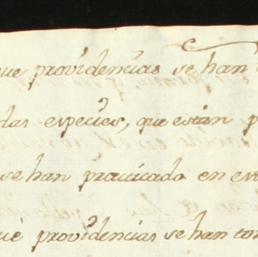 que providencias se han
das especies, que estan p
se han practicado en es
què providencias se han tom